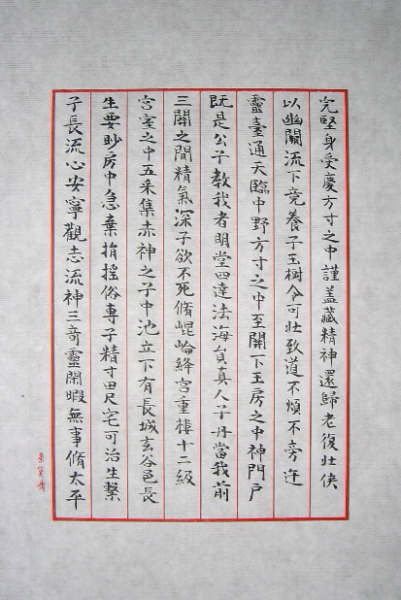 完堅身受慶方寸之中謹蓋藏精神還歸老復壯俠
以幽闕流下竟養子玉樹令可壯致道不煩不旁迕
靈臺通天臨中野方寸之中至關下玉房之中神門戶
既是公子教我者明堂四達法海員真人子丹當我前
三關之間精氣深子欲不死脩崐崘絳宮重樓十二級
宮室之中五采集赤神之子中池立下有長城玄谷邑長
生要眇房中急棄捐搖俗專子精寸田尺宅可治生繫
子長流心安寧觀志流神三奇靈閑暇無事脩太平